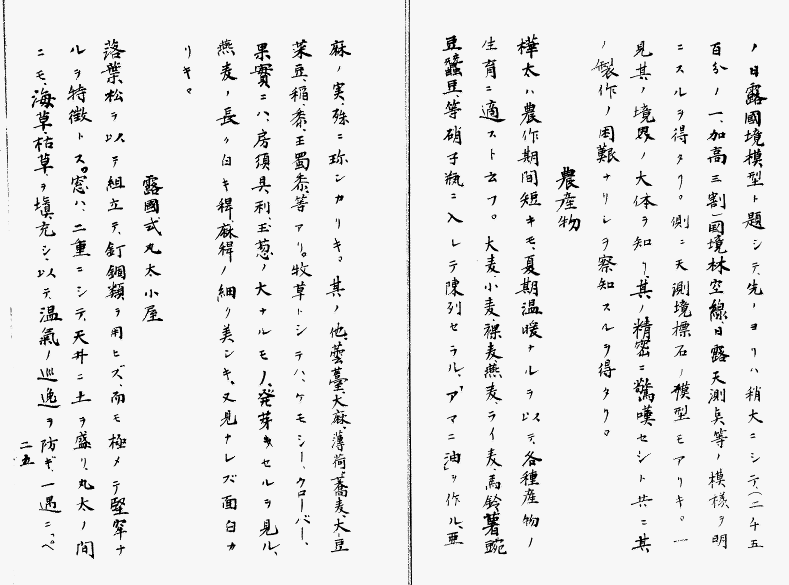 ノ日露國境模型ト題シテ、先ノヨリハ稍大ニシテ、(二千五
百分ノ一、加高三割)國境林空線、日露天測点等ノ模樣ヲ明
ニスルヲ得タリ。側ニ天測境標石ノ模型モアリキ。一
見其ノ境界ノ大体ヲ知リ、其ノ精密ニ驚嘆セシト共ニ其
ノ製作ノ困難ナリシヲ察知スルヲ得タリ。
農産物
樺太ハ農作期間短キモ、夏期温暖ナルヲ以テ、各種産物ノ
生育ニ適スト云フ。大麦、小麦、裸麦、燕麦、ライ麦、馬鈴薯、豌
豆、蠶豆、等硝子瓶ニ入レテ陳列セラル、アマニ油ヲ作ル、亜
麻ノ実、殊ニ珍シカリキ。其ノ他、蕓薹、大麻、薄荷、蕎麦、大豆
菜豆、稲、黍、玉蜀黍、等アリ。牧草トシテハ、ケモシー、クローバー、
果實ニハ、房須具利、玉葱ノ大ナルモノ、発芽セルヲ見ル、
燕麦ノ長ク白キ稈、麻稈ノ細ク美シキ、又見ナレズ面白カ
リキ。
露國式丸太小屋
落葉松ヲ以テ組立テ、釘錮類ヲ用ヒズ、而モ極メテ堅牢ナ
ルヲ特徴トス。窓ハ、二重ニシテ、天井ニ土ヲ盛リ、丸太ノ間
ニモ、海草、枯草、ヲ塡充シ、以テ、温氣ノ巡逸ヲ防ギ、一遇ニ、ペ
二五